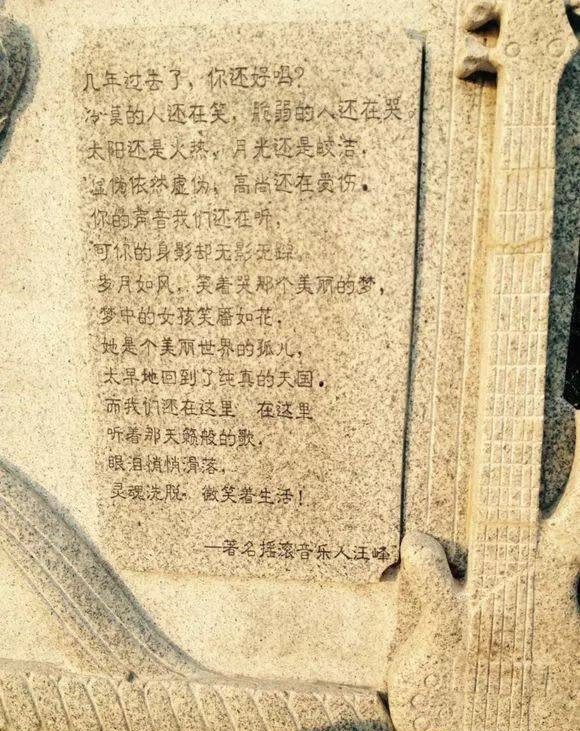 几年过去了，你还好吗？
冷漠的人还在笑，脆弱的人还在哭。
太阳还是火热，月光还是皎洁，
虚伪依然虚伪，高尚还在受伤。
你的声音我们还在听，
可你的身影却无影无踪。
岁月如风，笑着哭那个美丽的梦，
梦中的女孩笑靥如花，
她是个美丽世界的孤儿，
太早地回到了纯真的天国。
而我们还在这里 在这里
听着那天籁般的歌，
眼泪悄悄滑落，
灵魂洗脱，微笑着生活！
—著名摇滚音乐人汪峰